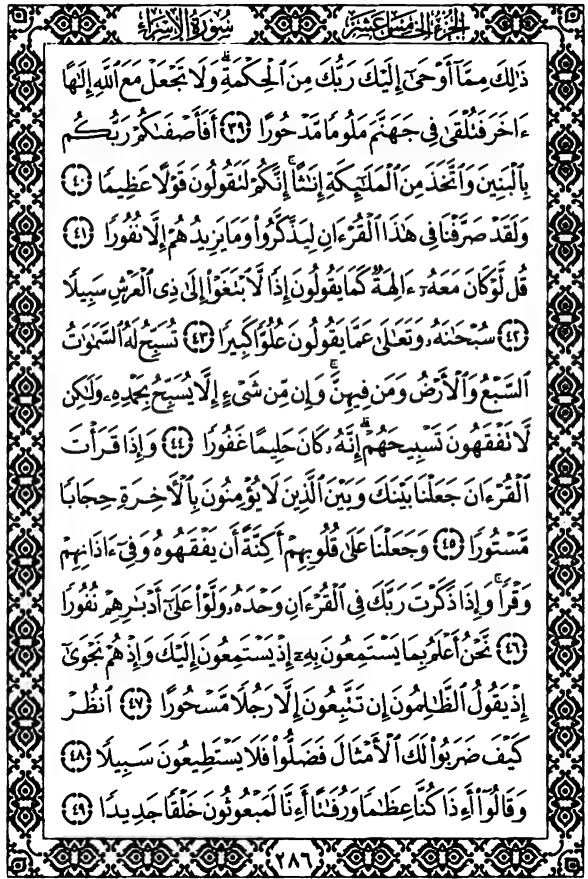 الجزء الخامس عشر سورة الإسراء
ذَٰلِكَ مِمَّآ أَوْحَىٰٓ إِلَيْكَ رَبُّكَ مِنَ ٱلْحِكْمَةِ ۗ وَلَا تَجْعَلْ مَعَ ٱللَّهِ إِلَٰهًا
ءَاخَرَ فَتُلْقَىٰ فِى جَهَنَّمَ مَلُومًا مَّدْحُورًا ٣٩ أَفَأَصْفَىٰكُمْ رَبُّكُم
بِٱلْبَنِينَ وَٱتَّخَذَ مِنَ ٱلْمَلَٰٓئِكَةِ إِنَٰثًا ۚ إِنَّكُمْ لَتَقُولُونَ قَوْلًا عَظِيمًا ٤٠
وَلَقَدْ صَرَّفْنَا فِى هَٰذَا ٱلْقُرْءَانِ لِيَذَّكَّرُوا۟ وَمَا يَزِيدُهُمْ إِلَّا نُفُورًا ٤١
قُل لَّوْ كَانَ مَعَهُۥٓ ءَالِهَةٌ كَمَا يَقُولُونَ إِذًا لَّٱبْتَغَوْا۟ إِلَىٰ ذِى ٱلْعَرْشِ سَبِيلًا
٤٢ سُبْحَٰنَهُۥ وَتَعَٰلَىٰ عَمَّا يَقُولُونَ عُلُوًّا كَبِيرًا ٤٣ تُسَبِّحُ لَهُ ٱلسَّمَٰوَٰتُ
ٱلسَّبْعُ وَٱلْأَرْضُ وَمَن فِيهِنَّ ۚ وَإِن مِّن شَىْءٍ إِلَّا يُسَبِّحُ بِحَمْدِهِۦ وَلَٰكِن
لَّا تَفْقَهُونَ تَسْبِيحَهُمْ ۗ إِنَّهُۥ كَانَ حَلِيمًا غَفُورًا ٤٤ وَإِذَا قَرَأْتَ
ٱلْقُرْءَانَ جَعَلْنَا بَيْنَكَ وَبَيْنَ ٱلَّذِينَ لَا يُؤْمِنُونَ بِٱلْءَاخِرَةِ حِجَابًا
مَّسْتُورًا ٤٥ وَجَعَلْنَا عَلَىٰ قُلُوبِهِمْ أَكِنَّةً أَن يَفْقَهُوهُ وَفِىٓ ءَاذَانِهِمْ
وَقْرًا ۚ وَإِذَا ذَكَرْتَ رَبَّكَ فِى ٱلْقُرْءَانِ وَحْدَهُۥ وَلَّوْا۟ عَلَىٰٓ أَدْبَٰرِهِمْ نُفُورًا
٤٦ نَّحْنُ أَعْلَمُ بِمَا يَسْتَمِعُونَ بِهِۦٓ إِذْ يَسْتَمِعُونَ إِلَيْكَ وَإِذْ هُمْ نَجْوَىٰٓ
إِذْ يَقُولُ ٱلظَّٰلِمُونَ إِن تَتَّبِعُونَ إِلَّا رَجُلًا مَّسْحُورًا ٤٧ ٱنظُرْ
كَيْفَ ضَرَبُوا۟ لَكَ ٱلْأَمْثَالَ فَضَلُّوا۟ فَلَا يَسْتَطِيعُونَ سَبِيلًا ٤٨
وَقَالُوٓا۟ أَءِذَا كُنَّا عِظَٰمًا وَرُفَٰتًا أَءِنَّا لَمَبْعُوثُونَ خَلْقًا جَدِيدًا ٤٩
٢٨٦